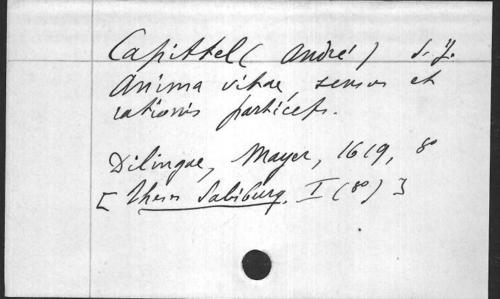 Capittel (André) S.J.
Anima vitae, sensus et
rationis particeps.
Dilingae, Mayer, 1619, 8°
[Thesis Salisburg. I (8°)]